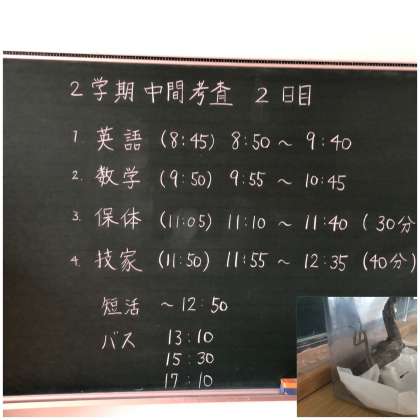 2学期中間考査 2日目
1. 英語 (8:45) 8:50 ~ 9:40
2. 数学 (9:50) 9:55 ~ 10:45
3. 保体 (11:05) 11:10 ~ 11:40 (30分
4. 技家 (11:50) 11:55 ~ 12:35 (40分)
短活 ~12:50
バス 13:10
15:30
17:10